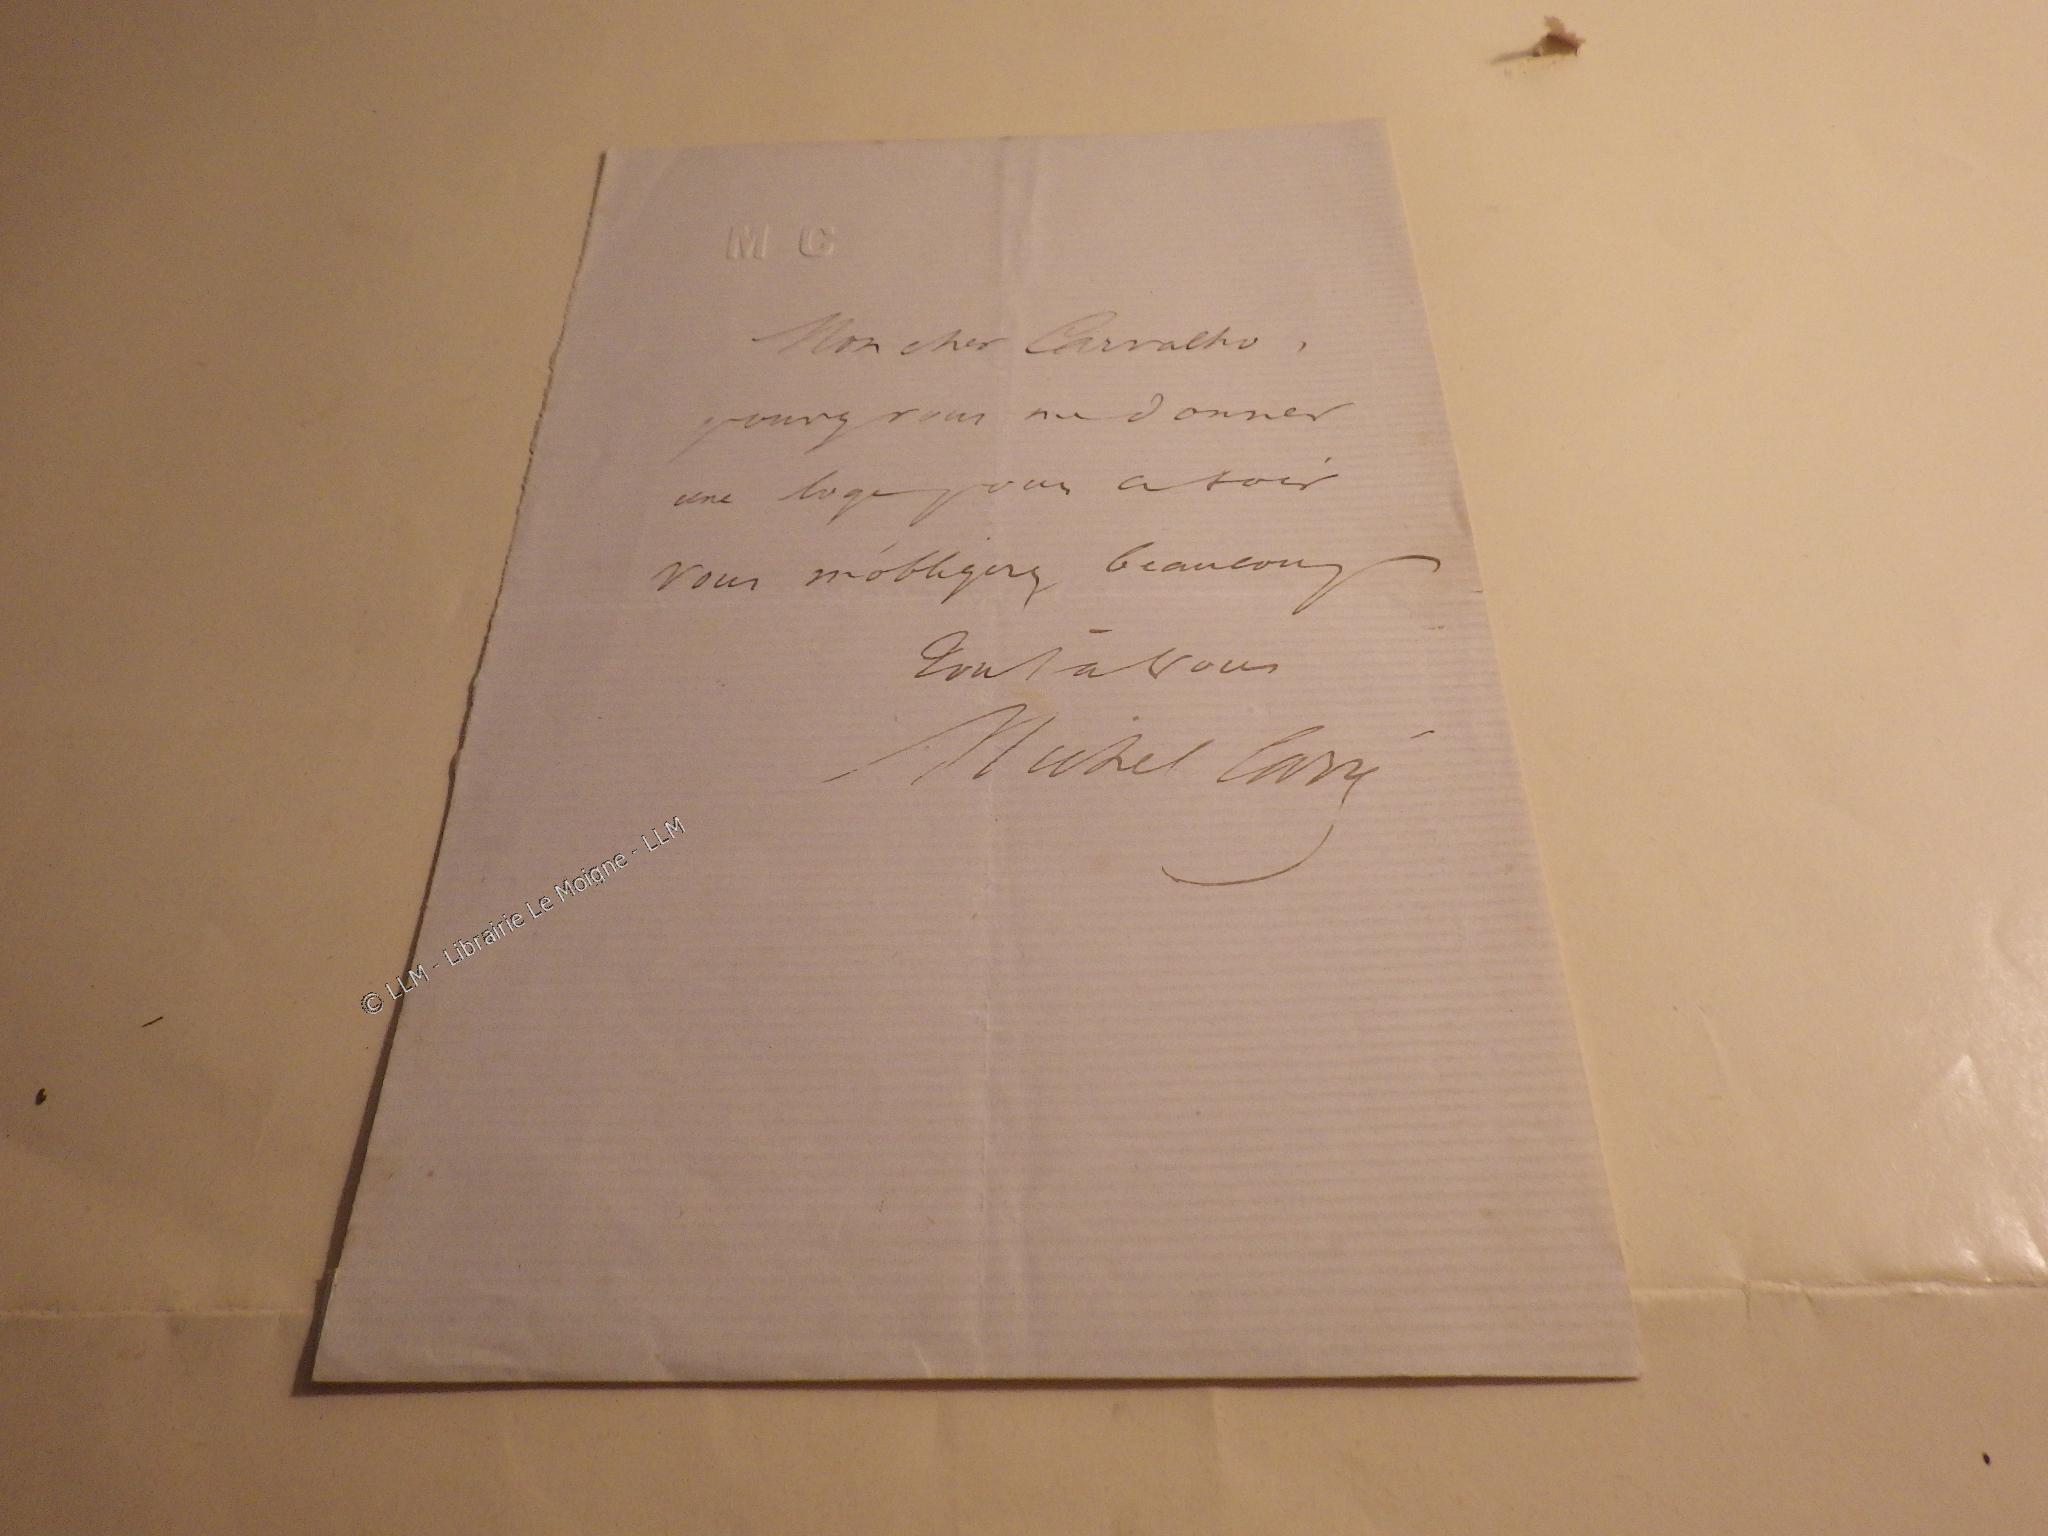 M C
Mon cher Carvalho,
pouvez vous me donner
une loge pour ce soir
Vous m'obligerez beaucoup
Tout à vous
Michel Carré
© LLM - Librairie Le Moigne - LLM